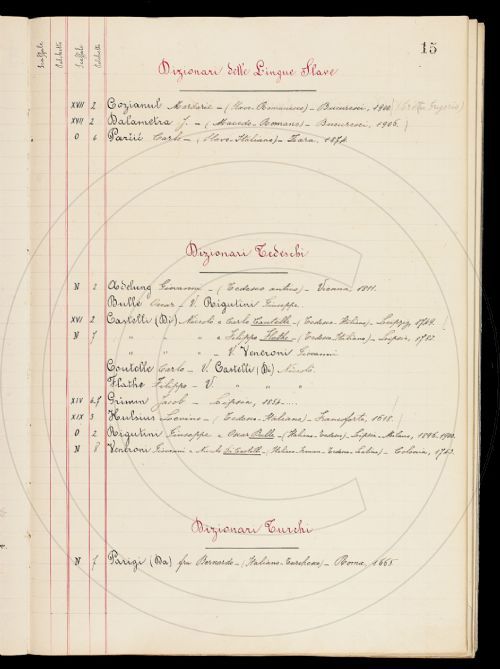 15
Scaffale Palchetto Scaffale Palchetto
Dizionari delle Lingue Slave
XVII 2 Cozianul Mardarie — (Slavo-Romanesco) — Bucuresci, 1900.
XVII 2 Dalametra J. — (Macedo-Romano) — Bucuresci, 1906.
O 6 Parčić Carlo — (Slavo-Italiano) — Zara, 1874.
Dizionari Tedeschi
N 2 Adelung Giovanni — (Tedesco antico) — Vienna, 1811.
Bulle Oscar — V. Rigutini Giuseppe.
XVI 2 Castelli (Di) Niccolò e Carlo Coutelle — (Tedesco-Italiano) — Leipzig,
N 7 " " " e Filippo Flathe — (Tedesco-Italiano) — Lipsia,
" " " — V. Veneroni Giovanni
Coutelle Carlo — V. Castelli (Di) Niccolò.
Flathe Filippo — V. " " "
XIV 6.7 Grimm Jacob — Lipsia, 1854 — ....
XIX 3 Hulsius Levino — (Tedesco-Italiano) — Francoforte, 1618.
O 2 Rigutini Giuseppe e Oscar Bulle — (Italiano-Tedesco) — Lipsia-Milano, 1896-1900.
N 8 Veneroni Giovanni e Nicolò Di Castelli — — Colonia,
Dizionari Turchi
N 7 Parigi (Da) fra Bernardo — (Italiano-Turchesco) — Roma, 1665.